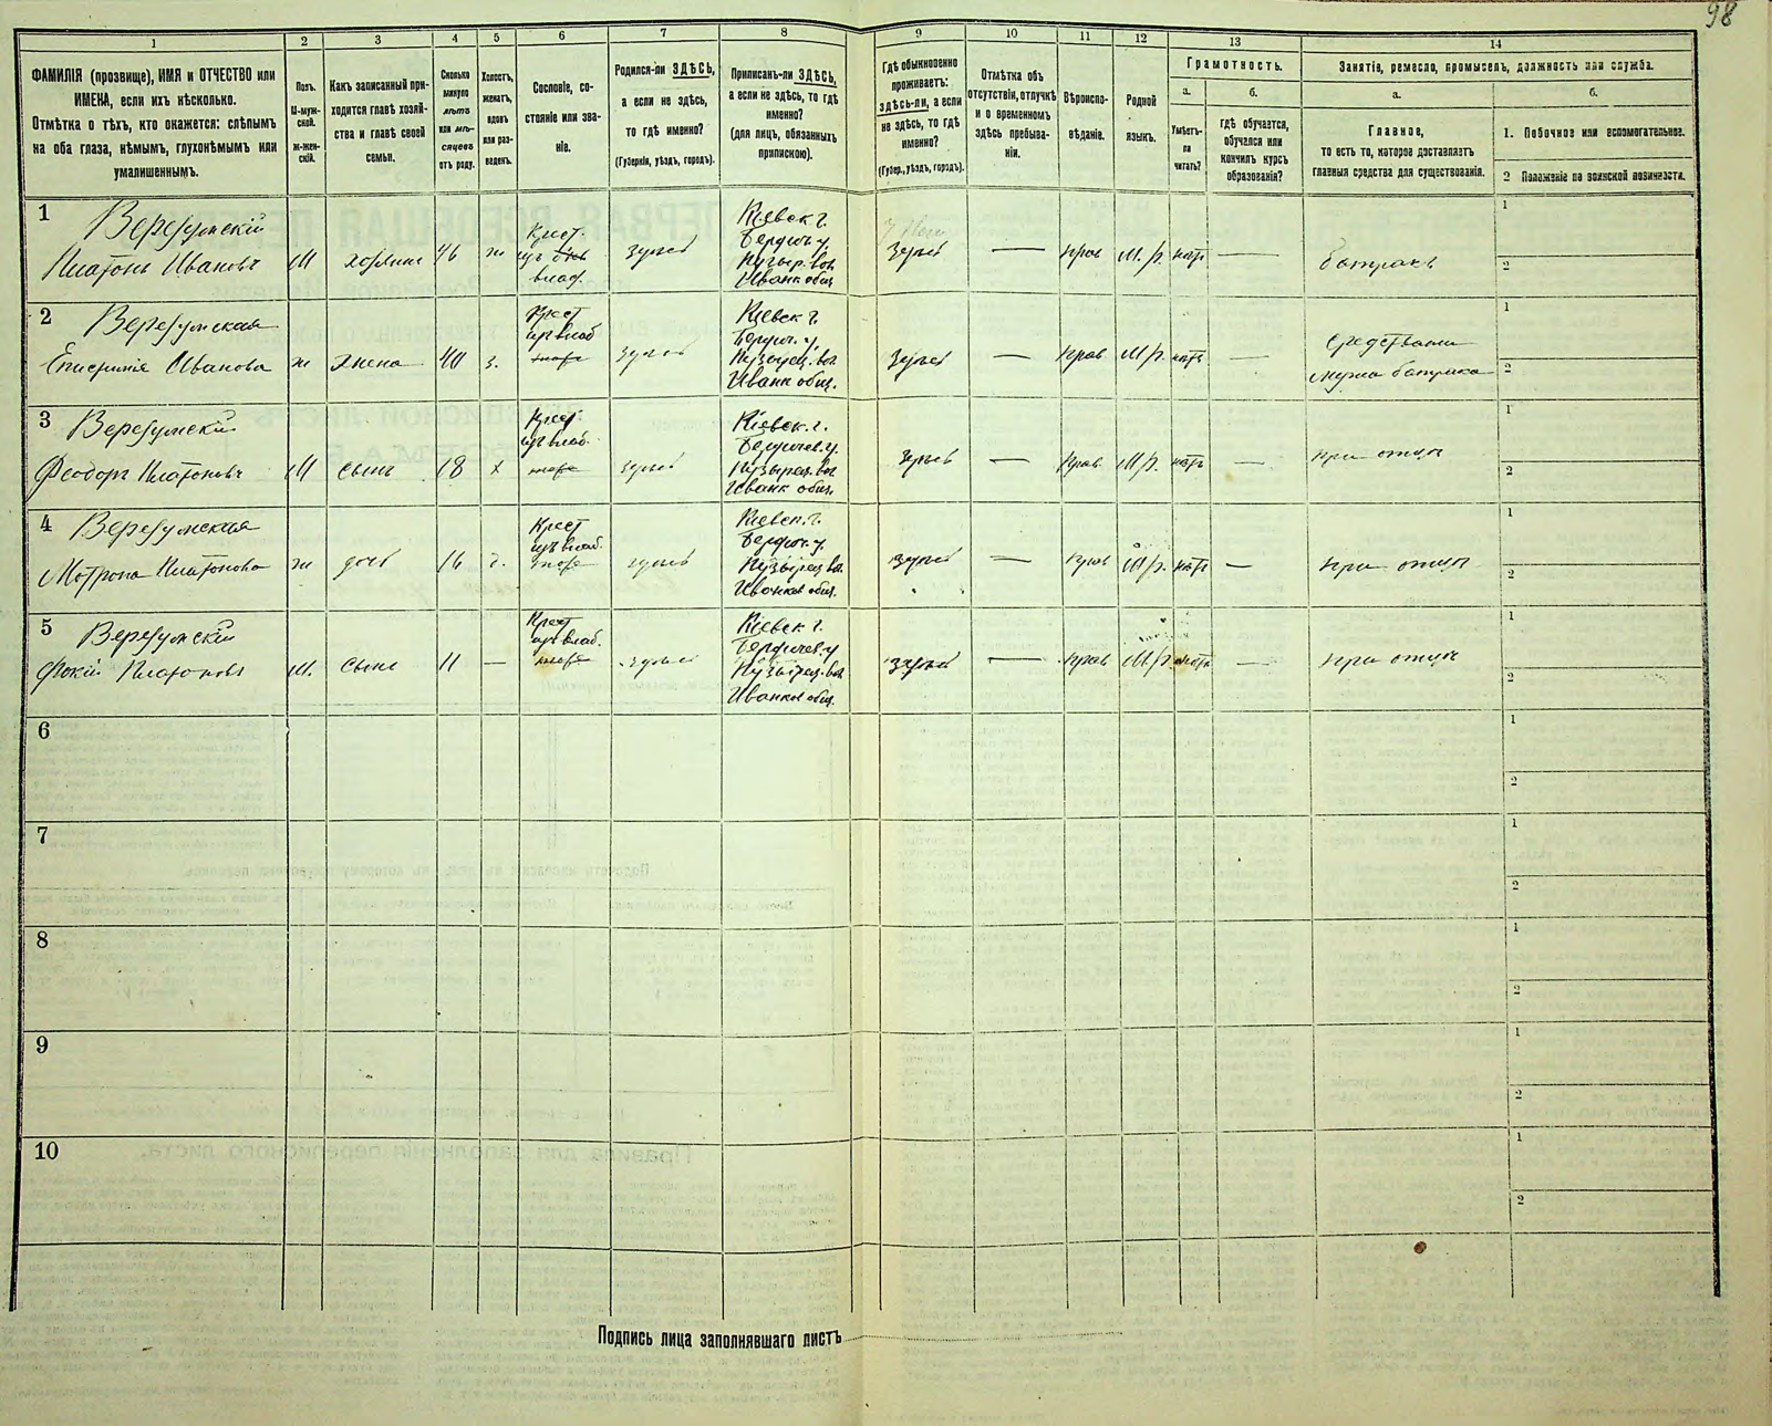 98
1 2 3 4 5 6 7 8 9 10 11 12 13 14
ФАМИЛІЯ (прозвище), ИМЯ и ОТЧЕСТВО или
ИМЕНА, если ихъ нѣсколько.
Отмѣтка о тѣхъ, кто окажется: слѣпымъ
на оба глаза, нѣмымъ, глухонѣмымъ или
умалишеннымъ.
Полъ.
М-муж-
ской.
ж-жен-
скій.
Какъ записанный при-
ходится главѣ хозяй-
ства и главѣ своей
семьи.
Сколько
минуло
лѣтъ
или мѣ-
сяцевъ
отъ роду.
Холостъ,
женатъ,
вдовъ
или раз-
веденъ.
Сословіе, со-
стояніе или зва-
ніе.
Родился-ли ЗДѢСЬ,
а если не здѣсь,
то гдѣ именно?
(Губернія, уѣздъ, городъ).
Приписанъ-ли ЗДѢСЬ,
а если не здѣсь, то гдѣ
именно?
(для лицъ, обязанныхъ
припискою).
Гдѣ обыкновенно
проживаетъ:
здѣсь-ли, а если
не здѣсь, то гдѣ
именно?
(Губер., уѣздъ, городъ).
Отмѣтка объ
отсутствіи, отлучкѣ
и о временномъ
здѣсь пребыва-
ніи.
Вѣроиспо-
вѣданіе.
Родной
языкъ.
Грамотность.
а.
Умѣетъ-
ли
читать?
б.
гдѣ обучается,
обучался или
кончилъ курсъ
образованія?
Занятіе, ремесло, промыселъ, должность или служба.
а.
Главное,
то есть то, которое доставляетъ
главныя средства для существованія.
б.
1. Побочное или вспомогательное.
2 Положеніе по воинской повинности.
1
Платонъ Ивановъ М хозяинъ 46 ж
Крест.
влад.
здѣсь
Кіевск г.
Бердич у.
здѣсь — прав М.р. нѣтъ —
батракъ
1
2
2
Ивановa ж жена 40 з.
Крест
изъ влад
здѣсь
Кіевск г.
Бердич. у.
Иванк общ.
здѣсь — прав М.р. нѣтъ —
средствами
мужа батрака
1
2
3
Феодоръ Платоновъ М сынъ 18 х
Крест
изъ влад.
здѣсь
Кіевск. г.
Бердичев. у.
Иванк общ.
здѣсь — прав М.р. нѣтъ —
при отцѣ
1
2
4
Мотрона Платонова ж дочь 16 д.
Крест
изъ влад.
здѣсь
Кіевск. г.
Бердич. у.
Иванков общ.
здѣсь — прав М.р. нѣтъ —
при отцѣ
1
2
5
Фокій Платоновъ М. сынъ 11 —
Крест
изъ влад.
здѣсь
Кіевск г.
Бердичев. у
Иванков общ.
здѣсь — прав М.р. нѣтъ —
при отцѣ
1
2
6
1
2
7
1
2
8
1
2
9
1
2
10
1
2
Подпись лица заполнявшаго листъ